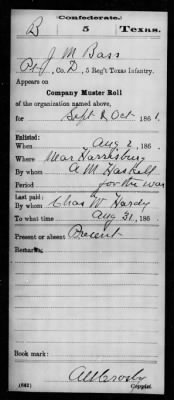 Confederate.
B 5 Texas.
J M Bass
Pvt, Co. D, 5 Reg't Texas Infantry.
Appears on
Company Muster Roll
of the organization named above,
for Sept & Oct 186 .
Enlisted:
When Aug 2, 186 .
Where Near Harrisburg
By whom A M Haskell
Period for the war
Last paid:
By whom Chas W Hardy
To what time Aug 31, 186 .
Present or absent Present
Remarks:
Book mark:
(642) Copyist.